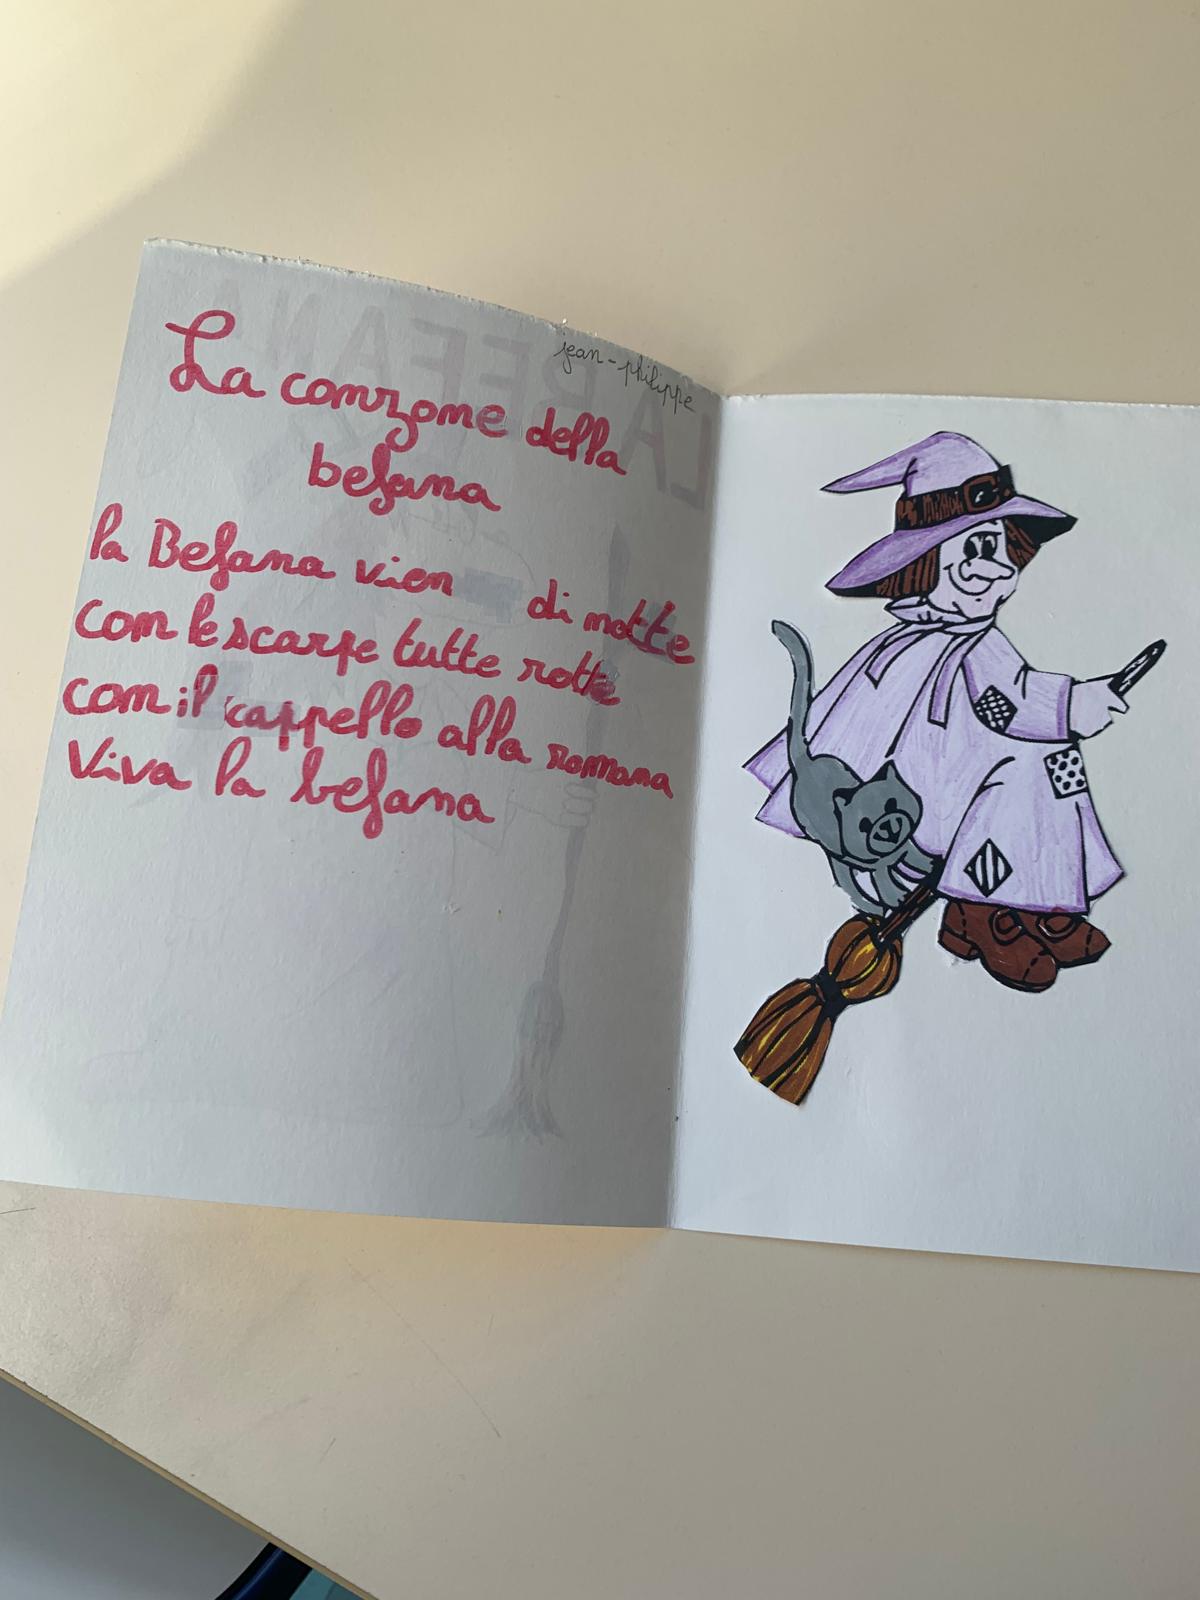 jean-philippe
La canzone della
befana
la Befana vien di notte
con le scarpe tutte rotte
con il cappello alla romana
Viva la befana
LA BEFANA